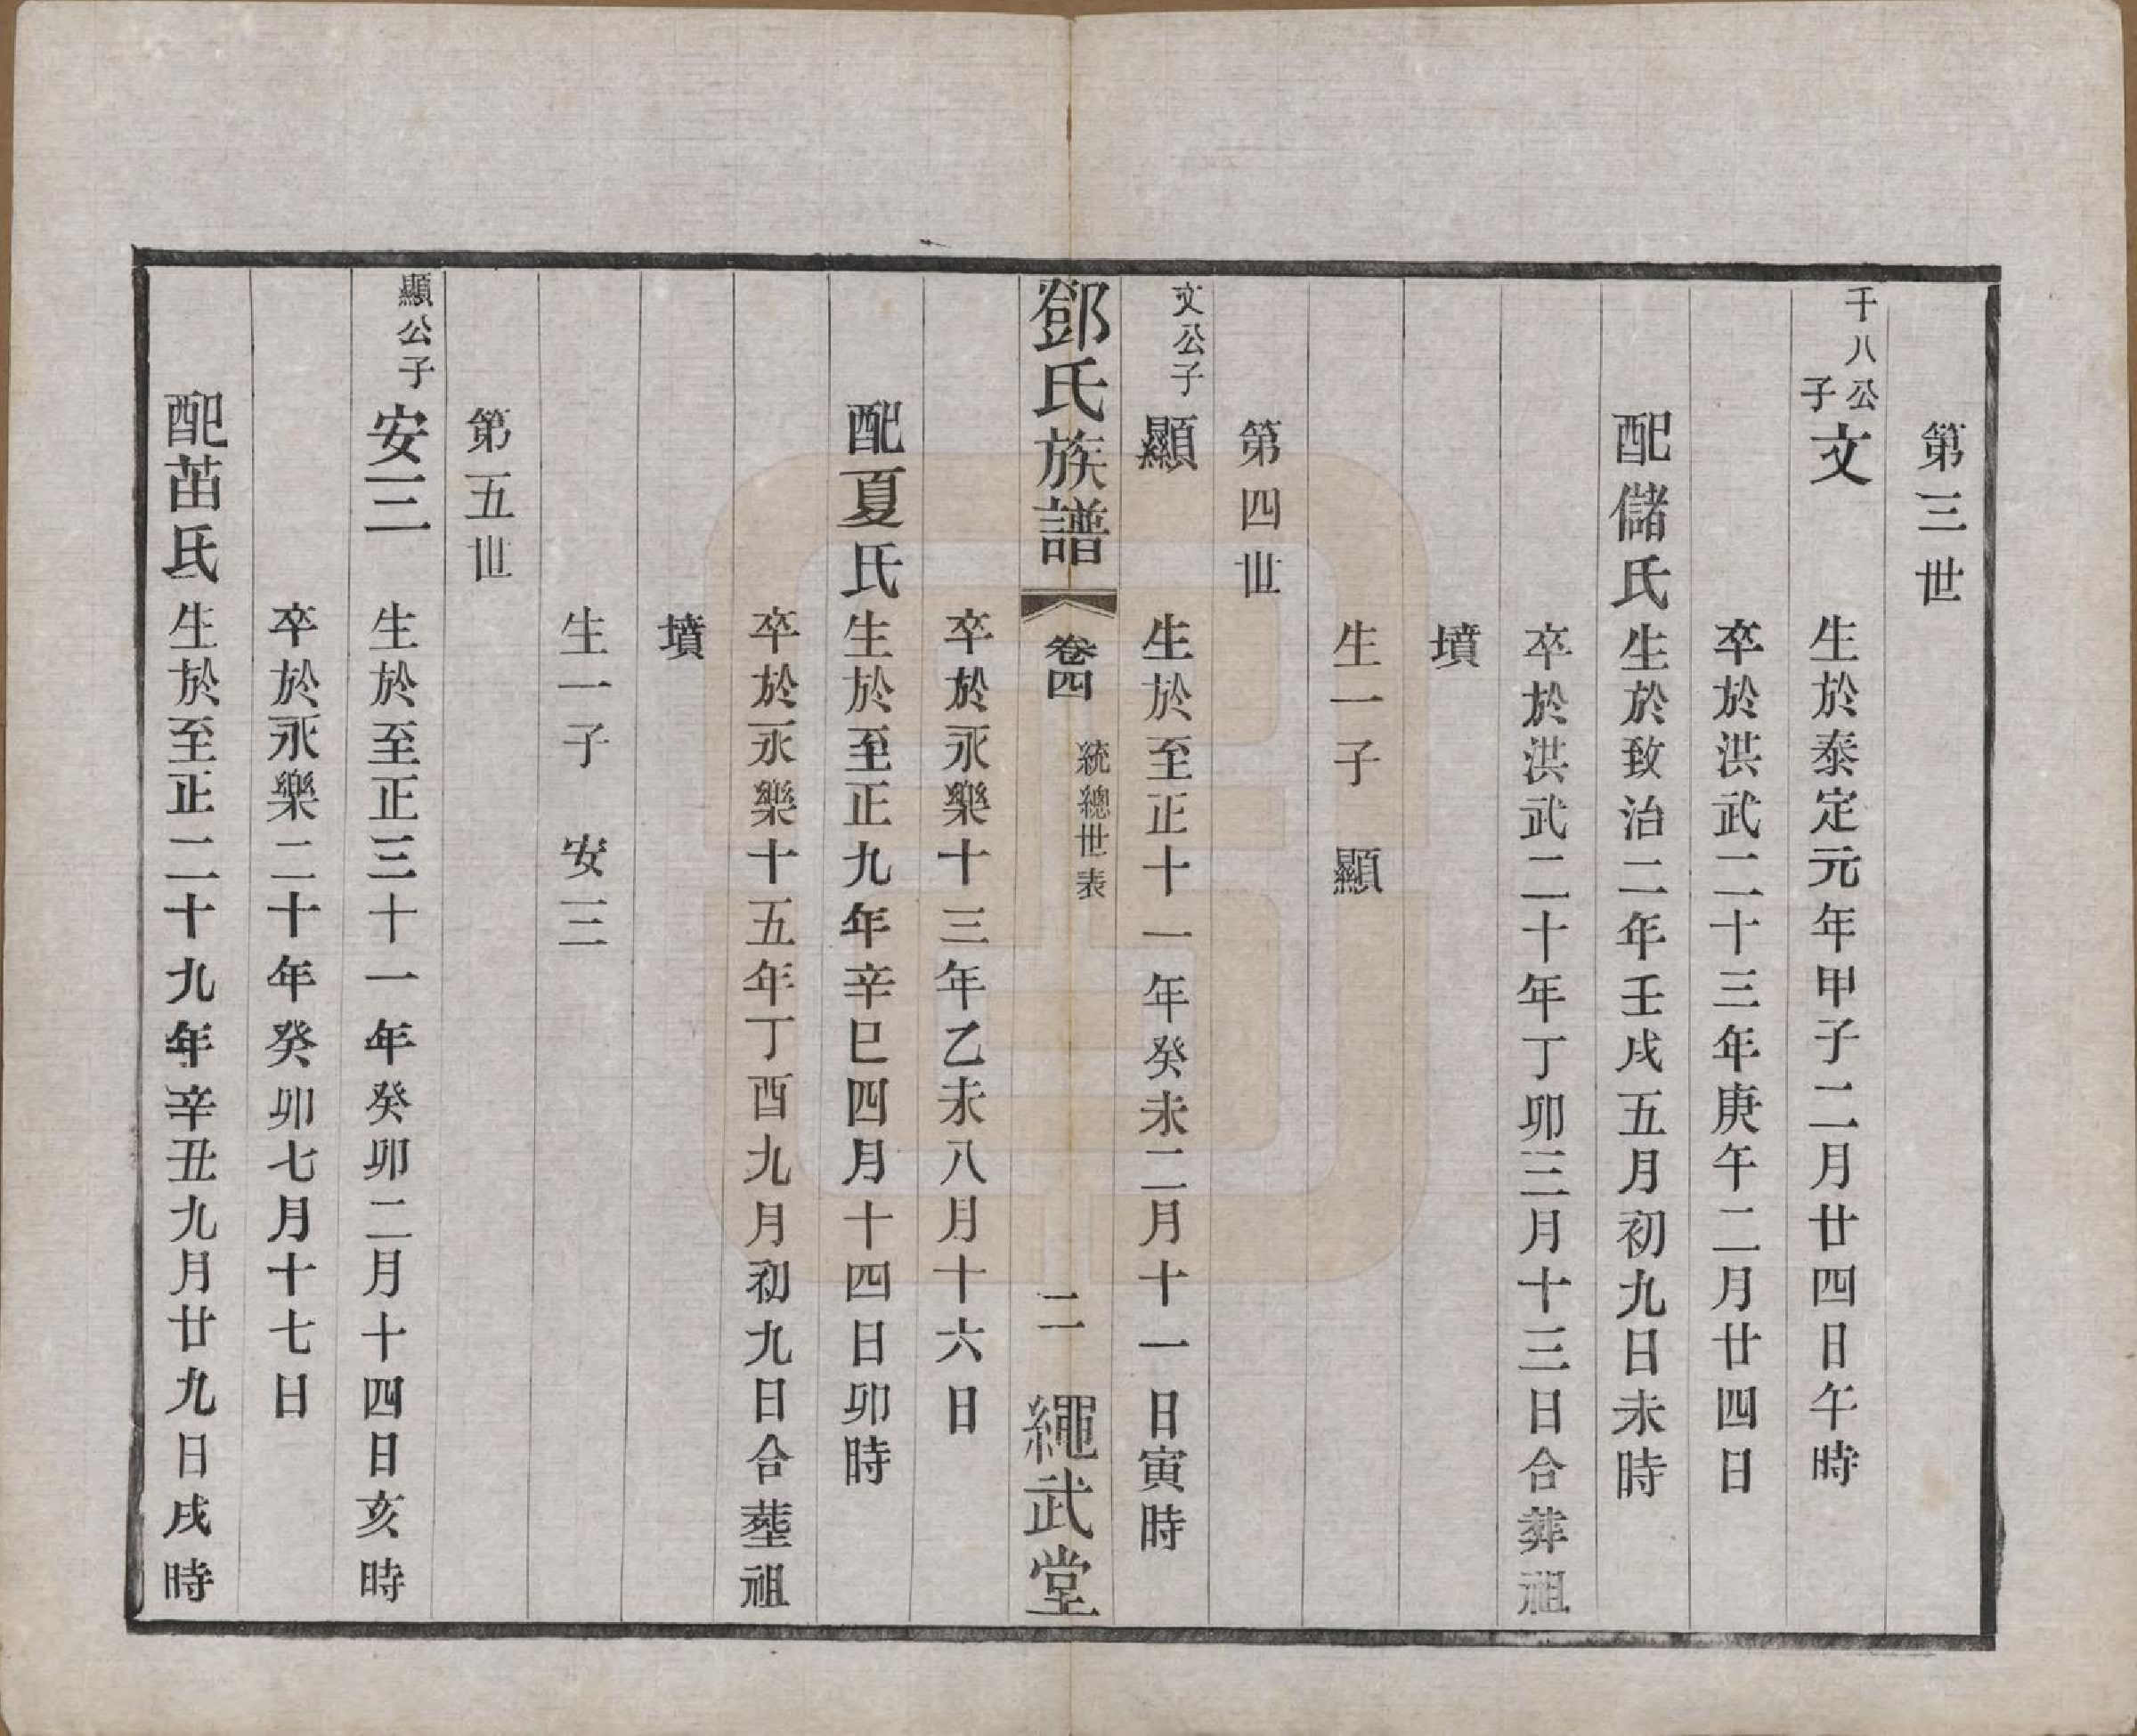 第三世
千八公子文 生於泰定元年甲子二月廿四日午時
卒於洪武二十三年庚午二月廿四日
配儲氏生於致治二年壬戌五月初九日未時
卒於洪武二十年丁卯三月十三日合葬祖
墳
生一子 顯
第四世
文公子顯 生於至正十一年癸未二月十一日寅時
鄧氏族譜 卷四 統總世表 二 繩武堂
卒於永樂十三年乙未八月十六日
配夏氏生於至正九年辛巳四月十四日卯時
卒於永樂十五年丁酉九月初九日合塟祖
墳
生一子 安三
第五世
顯公子安三 生於至正三十一年癸卯二月十四日亥時
卒於永樂二十年癸卯七月十七日
配苗氏生於至正二十九年辛丑九月廿九日戌時